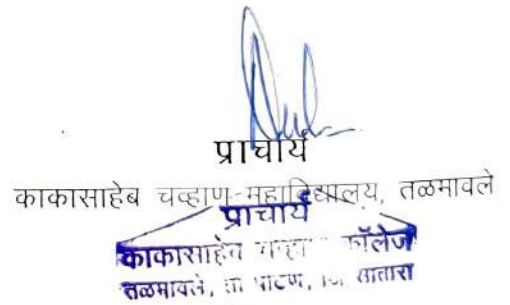 प्राचार्य
काकासाहेब चव्हाण महाविद्यालय, तळमावले
प्राचार्य
काकासाहेब चव्हाण कॉलेज
तळमावले, ता पाटण, जि. सातारा